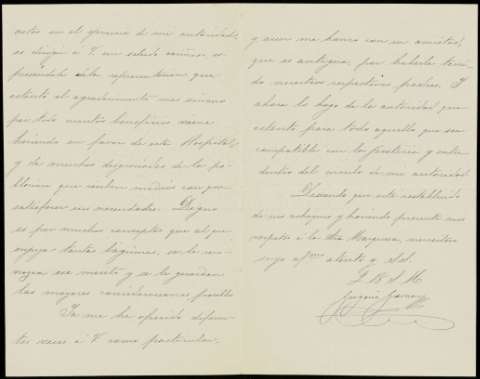 actos en el ejercicio de mi autoridad,
es dirigir á V. un saludo cariñoso, re-
presentándole en la representación que
ostento el agradecimiento mas sincero
por todo cuantos beneficios viene
haciendo en favor de este Hospital,
y de muchos desgraciados de la po-
blacion que carecen medios con que
satisfacer sus necesidades. Digno
es por muchos conceptos que el que
enjuga tantas lágrimas, se le reco-
nozca ese merito y se le guarden
las mayores consideraciones posibles
Ya me he ofrecido diferen-
tes veces á V. como particular,
y aun me honro con su amistad,
que es antigua, por haberla teni-
do nuestros respectivos padres. Y
ahora lo hago de la autoridad que
ostento para todo aquello que sea
compatible con la justicia y este
dentro del circulo de mi autoridad.
Deseando que esté restablecido
de sus achaques y haciendo presente mis
respetos á la Sra Marquesa, me reitero
suyo afmo atento y S.S.
Q B S M